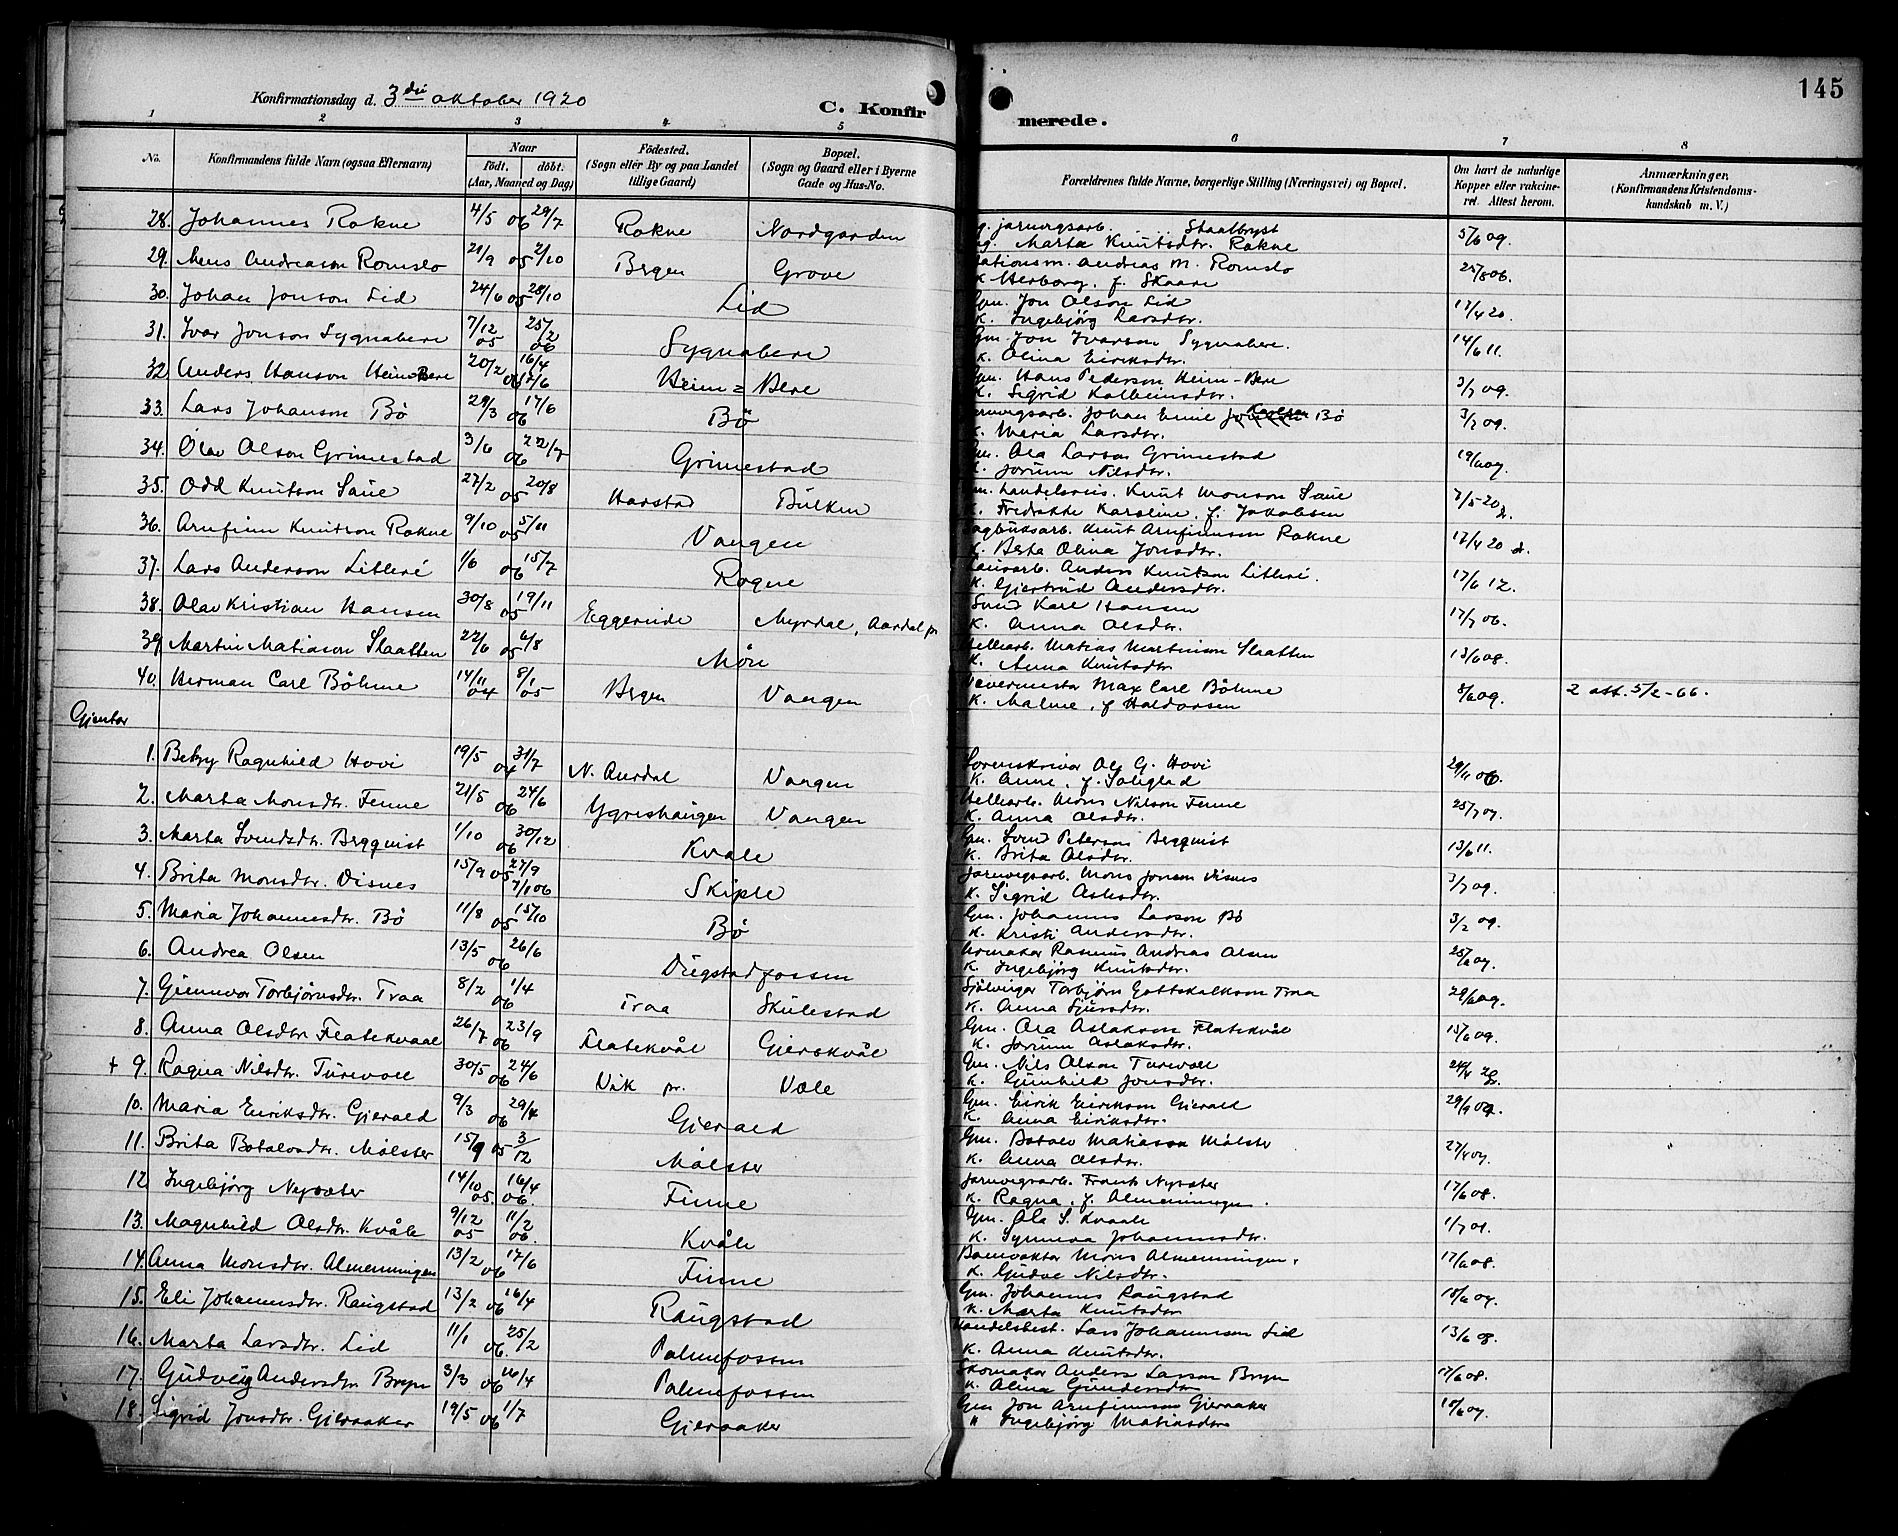 145
Konfirmationsdag d. 3die oktober 1920
C. Konfirmerede.
1 2 3 4 5 6 7 8
No. Konfirmandens fulde Navn (ogsaa Efternavn) Naar Födt. döbt. (Aar, Maaned og Dag) Födested. (Sogn eller By og paa Landet tillige Gaard) Bopæl. (Sogn og Gaard eller i Byerne Gade og Hus-No. Forældrenes fulde Navne, borgerlige Stilling (Næringsvei) og Bopæl. Om havt de naturlige Kopper eller vakcineret. Attest herom. Anmærkninger. (Konfirmandens Kristendomskundskab m. V.)
28. Johannes Rokne 4/5 06 29/7 Rokne Nordgarden jarnvegsarb. Staalbryst 5/6 09.
Marta Knutsdtr. Rokne
29. Mons Andreason Romslo 21/9 05 2/10 Bergen Grove Andreas M. Romslo 25/8 06.
K. Herborg, f. Skaare
30. Johan Jonson Lid 24/6 05 28/10 Lid Gm. Jon Olson Lid 17/4 20.
K. Ingebjörg Larsdtr.
31. Ivar Jonson Sygnabere 7/12 05 25/2 06 Sygnabere Gm. Jon Ivarson Sygnabere. 14/6 11.
K. Olina Eiriksdtr.
32. Anders Hanson Heim-Bere 20/2 06 16/4 Heim = Bere Gm. Hans Pederson Heim-Bere 3/7 09.
K. Sigrid Kolbeinsdtr.
33. Lars Johanson Bö 29/3 06 17/6 Bö Jarnvegsarb. Johan Emil Karlsen Bö 3/7 09.
K. Maria Larsdtr.
34. Olav Olson Grimestad 3/6 06 22/7 Grimestad Gm. Ola Larson Grimestad 19/6 07.
K. Jorunn Nilsdtr.
35. Odd Knutson Saue 27/2 05 20/8 Harstad Bulken Knut Monson Saue 7/5 20
K. Fredrikke Karoline, f. Jakobsen
36. Arnfinn Knutson Rokne 9/10 05 5/11 Vangen Knut Arnfinnson Rokne 17/4 20
K. Berta Olina Jonsdtr.
37. Lars Anderson Litleré 1/6 06 15/7 Rogne Anders Knutson Litleré. 17/6 12.
K. Gjertrud Andersdtr.
38. Olav Kristian Hansen 30/8 05 19/11 Eggereide Myrdal, Aardal pr. Smed Karl Hansen 17/7 06.
K. Anna Olsdtr.
39. Martin Matiason Slaatten 22/6 05 6/8 Møn Hellearb. Matias Martinson Slaatten 13/6 08.
K. Anna Knutsdtr.
40. Herman Carl Böhme 14/11 04 8/1 05 Bergen Vangen Max Carl Böhme 8/6 09. 2 att. 5/2-66.
K. Malene, f. Haldorsen
Gjentor
1. Betzy Ragnhild Hovi 19/5 04 31/7 N. Aurdal Vangen Sorenskrivar Ole G. Hovi 29/11 06.
K. Anne, f.
2. Marta Monsdtr. Finne 21/5 06 24/6 Ygreshaugen Vangen Hellearb. Mons Nilson Finne 25/7 07.
K. Anna Olsdtr.
3. Marta Svendsdtr. Bergquist 1/10 06 30/12 Kvale Gm. Svend Peterson Bergquist 13/6 11.
K. Brita Olsdtr.
4. Brita Monsdtr. Disnes 15/9 05 27/9 7/1 06 Skiple Jarnvegsarb. Mons Jonson Disnes 3/7 09.
K. Sigrid Aslesdtr.
5. Maria Johannesdtr. Bö 11/8 05 15/10 Bö Gm. Johannes Larson Bö 3/2 09.
K. Kristi Andersdtr.
6. Andrea Olsen 13/5 06 26/6 Dugstadfossen Urmakar Rasmus Andreas Olsen
K. Ingebjörg Knutsdtr.
7. Gjennvor Torbjörnsdtr. Traa 8/2 06 1/4 Traa Skulestad Sjöleigar Torbjörn Gottskalkson Traa 29/6 09.
K. Anna Sjursdtr.
8. Anna Olsdtr. Flatekvaal 26/7 06 23/9 Flatekvål Gjerskvål Gm. Ola Aslakson Flatekvål 15/6 09.
K. Jorunn Aslaksdtr.
+ 9. Ragna Nilsdtr. Turevoll 30/5 06 24/6 Vik pr. Væle Gm. Nils Olson Turevoll
K. Gunhild Jonsdtr.
10. Maria Eiriksdtr. Gjerald 9/3 06 29/4 Gjerald Gm. Eirik Eirikson Gjerald 29/9 09.
K. Anna Eiriksdtr.
11. Brita Botolvsdtr. Mölster 15/9 05 3/12 Mölster Gm. Botolv Matiason Mölster 27/4 07.
K. Anna Olsdtr.
12. Ingebjörg Nysæter 14/10 05. 16/4 06. Finne Jarnvegsarb. Frank Nysæter 17/6 08.
K. Ragna, f. Almenningen.
13. Magnhild Olsdtr. Kvåle 9/12 05 11/2 06. Kvåle Gm. Ola S. Kvaale 1/7 07.
K. Synneva Johannesdtr.
14. Anna Monsdtr. Almenningen 13/2 06 17/6 Finne Banevaktar Mons Almenningen. 17/6 08.
K. Gudve Nilsdtr.
15. Eli Johannesdtr. Raugstad 13/2 06 16/4 Raugstad Gm. Johannes Raugstad 18/6 07.
K. Marta Knutsdtr.
16. Marta Larsdtr. Lid 11/1 06. 25/2 Palmefossen Handelsbest. Lars Johannson Lid 13/6 08.
K. Anna Knutsdtr.
17. Gudveig Andersdtr. Bryn 3/3 06 16/4 Palmefossen Skomakar Anders Larson Bryn 17/6 08.
K. Alina Gundersdtr.
18. Sigrid Jonsdtr. Gjeraaker 19/5 06 1/7 Gjeraaker Gm Jon Arnfinnson Gjeraaker 18/6 07.
" Ingebjörg Matiasdtr.